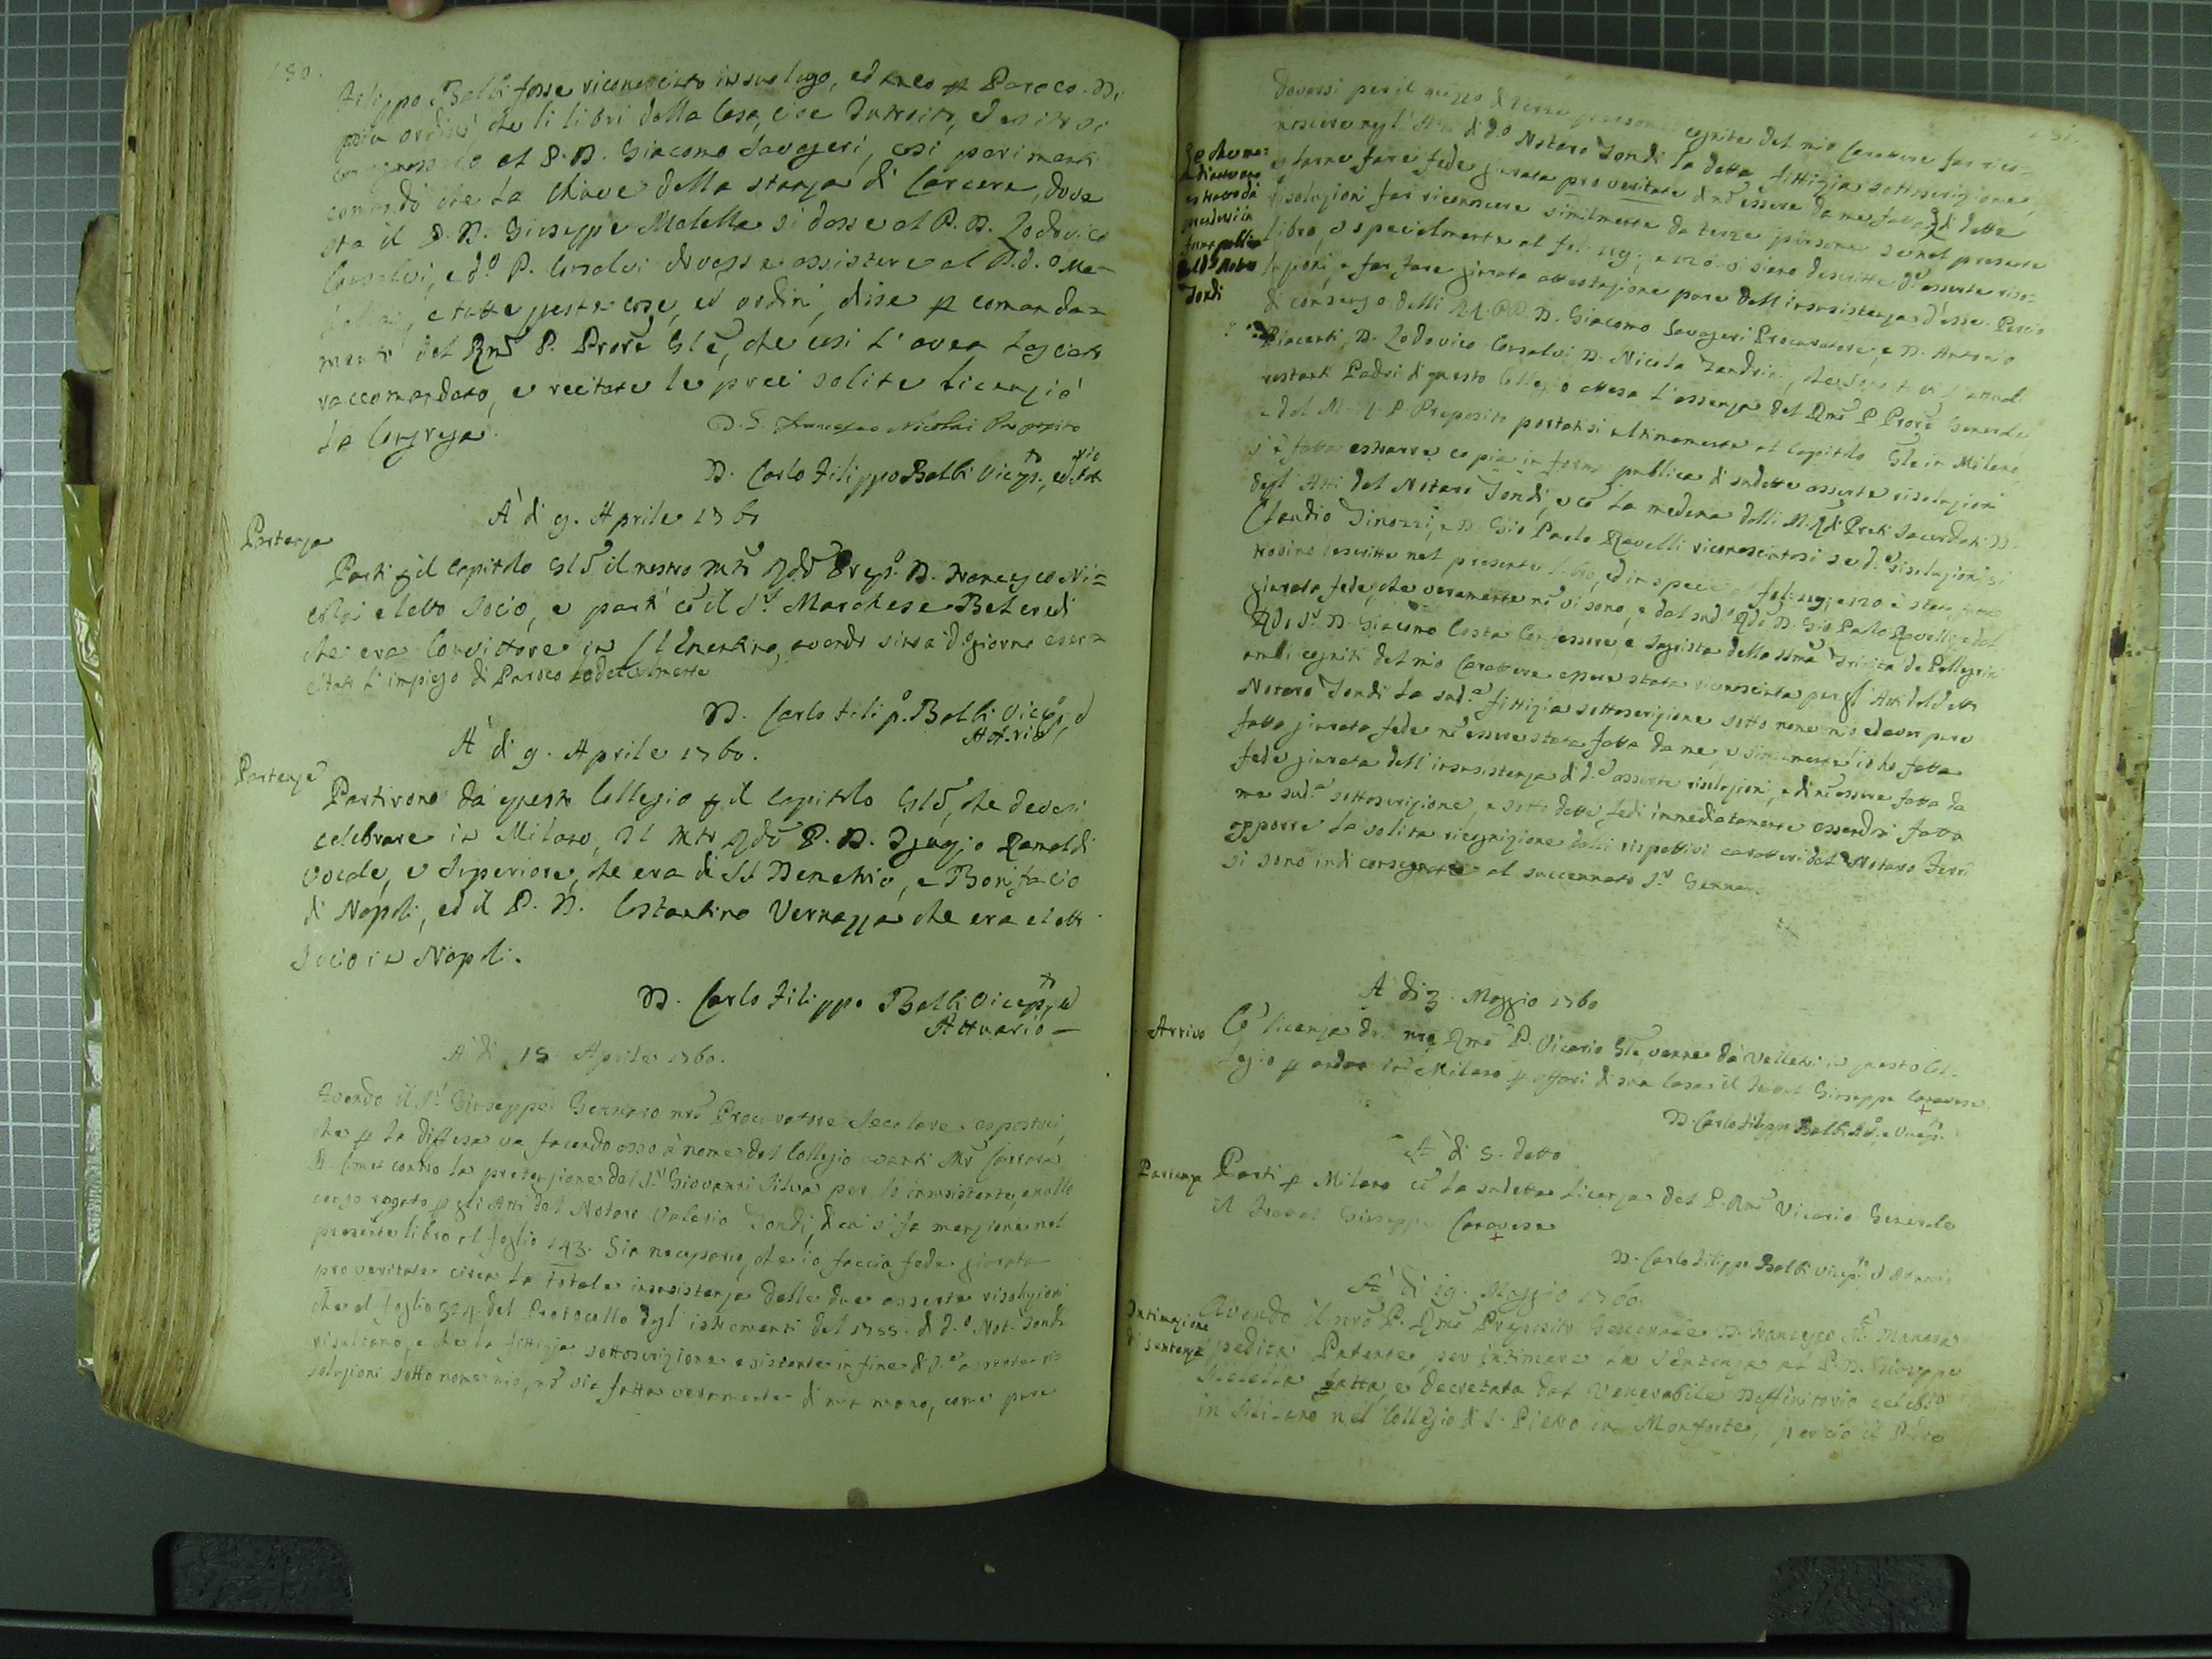 180.
Filippo Balbi fosse riconosciuto in suo luogo, ed anco p Paroco. Di
più ordinò che li libri della Casa, cioe Introito, ed esito si
al P. D. Giacomo Savageri, così parimenti
comandò che la Chiave della stanza di Carcere, dove
sta il P. D. Giuseppe Matella si dasse al P. D. Lodovico
Consalvi, e d.o P. Consalvi dovesse assistere al P. d.o Ma-
, e tutte queste cose, ed ordini, disse p comanda=
mento del Rmo P. Prore Gle, che così l'avea lasciato
raccomandato, e recitate le preci solite licenziò
la Congrega.
D. Francesco Nicolai Preposito
D. Carlo Filippo Balbi Vicep.to, ed Att.rio
À di 9. Aprile 1760
Partenza
Parti p il Capitolo Glē il nostro Mto Rdo Prep.o D. Francesco Ni=
colai eletto Socio, e partì cō il S.r Marchese Beteredi
che era Convittore in Clementino, avendo sin a d.o giorno eser=
citato l'impiego di Paroco lodevolmente
D. Carlo Filip.o Balbi Vicep.to, ed
Att.rio
À di 9. Aprile 1760.
Partenza
Partirono da questo Collegio p il Capitolo Glē, che devesi
celebrare in Milano, Il Mto Rdo P. D. Ignazio Ramoldi
Vocale, e Superiore, che era di SS Demetrio, e Bonifacio
di Napoli, ed il P. D. Costantino Vernazza che era eletto
Socio in Napoli.
D. Carlo Filippo Balbi Vicep.to, ed
Attuario
À di 15 Aprile 1760.
Avendo il S.r Giuseppe Gennaro nrō Procuratore Secolare espostoci,
che p la diffesa va facendo esso à nome del Collegio avanti Mr Carrara
contro la pretenzione del S.r Giovanni Silva per lo insussistente, e nullo
censo rogato p gli Atti del Notaro Valerio Tondi, di cui si fa menzione nel
presente libro al foglio 143. Sia necessario, che io faccia fede giurata
pro veritate circa la totale insussistenza delle due asserte risoluzioni
che al foglio 324 del Protocollo degl'istromenti del 1755. di d.o Not. Tondi
risultano, e che la fittizia sottoscrizione esistente in fine di d.e asserte ri-
soluzioni sotto nome mio, nō sia fatta veramente di mia mano, come pure
181.
doversi per il mezzo di terze persone cognite del mio Carattere far rico=
noscere negl'Atti di d.o Notaro Tondi la detta fittizia sottoscrizione,
e farne fare fede giurata pro veritate di nō essere da me fatta e di dette
risoluzioni far riconoscere similmente da terze persone se nel presente
libro, e specialmente al fol. 119, e 120 vi siano descritte d.e asserte riso-
luzioni, e far fare giurata attestazione pure dell'insussistenza d'esse. Percio
di consenzo delli RR. PP. D. Giacomo Savageri Procuratore, e D. Antonio
Piacenti, D. Lodovico Consalvi, D. Nicola Tandrini,
restanti Padri di questo Collegio attesa l'assenza del Rmō P. Prore Generale,
e del M. R. P. Preposito portatisi ultimamente al Capitolo Gle in Milano
s'è fatta estrarre copia in forma publica di sudette asserte risoluzioni
degl'Atti del Notaro Tondi, e cō la medema dalli M. R.di Preti Sacerdoti D.
Claudio Tinozzi, e D. Gio Paolo Ravelli riconosciutosi se d.e risoluzioni si
trovino descritte nel presente libro, ed in specie a fol. 119, e 120 è stata fatta
giurata fede, che veramente nō vi sono, e dal sud.o Rdo D. Gio Paolo Ravelli, e dal
Rdo S.r D. Giacomo Costa Confessore, e Sagrista della SSma Trinità de Pellegrini
ambi cogniti del mio Carattere essere stata riconosciuta per gl'Atti del detto
Notaro Tondi la sud.a fittizia sottoscrizione sotto nome mio ed aver pure
fatto giurata fede nō essere stata fatta da me, e similmente io ho fatta
fede giurata dell'insussistenza di d.e asserte risoluzioni, e di nō essere fatta da
me sud.a sottoscrizione, e sotto dette fedi immediatamente essendosi fatta
apporre la solita ricognizione delli rispettivi caratteri dal Notaro Ferri
si sono indi consegnate al succennato S.r Gennaro
Tondi
À di 3. Maggio 1760
Arrivo
Cō licenza del nrō Rmō P. Vicario Gle, venne da Velletri in questo Col-
legio p andar in Milano p affari di sua Casa il Fratel Giuseppe Canavese.
D. Carlo Filippo Balbi Att.o, e Vicep.to
À di 5. detto
Partenza
Parti p Milano cō la sudetta licenza del P. Rmō Vicario Generale
il Fratel Giuseppe Canavese
D. Carlo Filippo Balbi Vicep.to ed Attuario
À di 19. Maggio 1760.
Intimazione
di sentenza
Avendo il nrō P. Rmō Preposito Generale D. Francesco M.a Manara
spedita Patente, per intimare la Sentenza al P. D. Giuseppe
Matella fatta, e decretata dal Venerabile Deffinitorio celebrato
in Milano nel Collegio di S. Pietro in Monforte, perciò il Padre